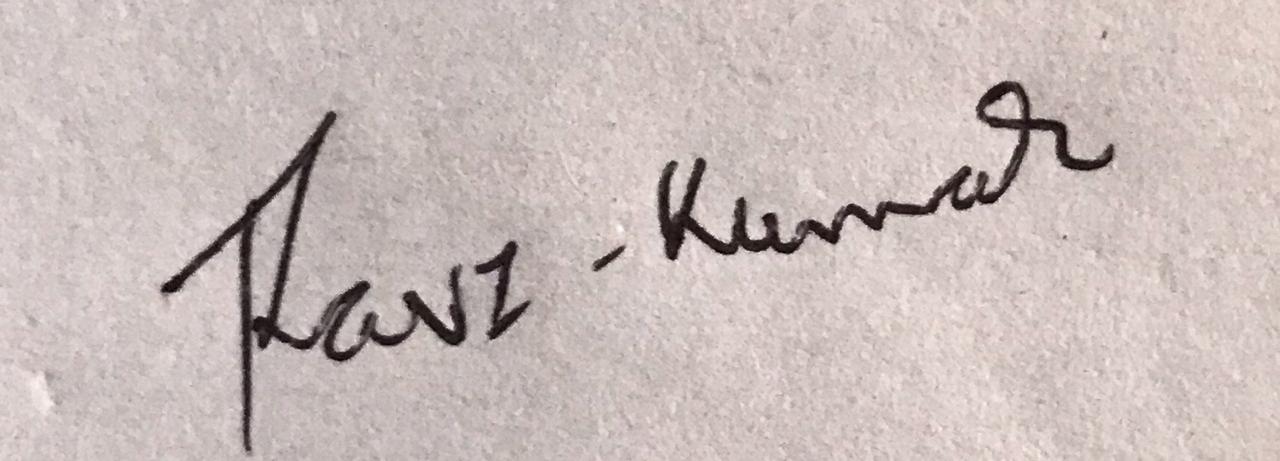 Ravi - Kumar